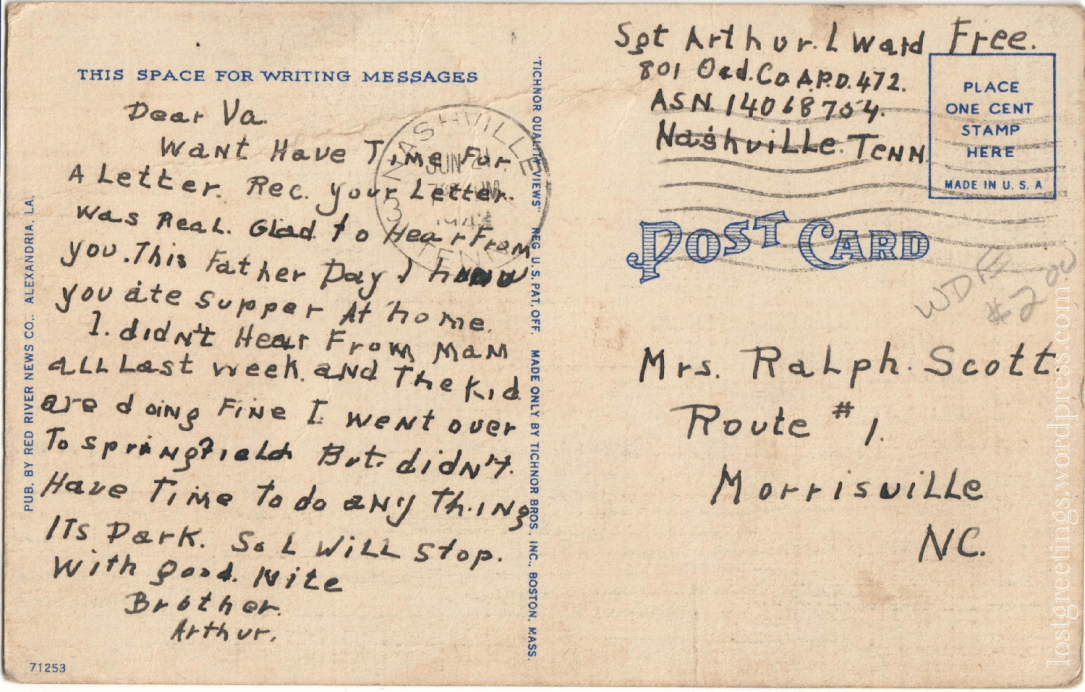 THIS SPACE FOR WRITING MESSAGES
Dear Va.
Want Have Time For
A Letter. Rec. your Letter.
was Real. Glad to Hear From
you. This Father Day I
you ate supper At home.
I. didn't Hear From Mam
all Last week. and The Kid
are doing Fine I went over
To springfield But. didn't.
Have Time To do any Thing
Its Dark. So I will stop.
with good. Nite
Brother.
Arthur.
71253
PUB. BY RED RIVER NEWS CO., ALEXANDRIA, LA.
"TICHNOR QUALITY VIEWS" REG. U.S. PAT. OFF. MADE ONLY BY TICHNOR BROS., INC., BOSTON, MASS.
NASHVILLE
JUN
TENN
3
Sgt Arthur. L Ward Free.
801 Ord. Co A.P.D. 472.
ASN. 14068754.
Nashville. Tenn.
PLACE
ONE CENT
STAMP
HERE
MADE IN U. S. A
POST CARD
#2
Mrs. Ralph. Scott.
Route # 1.
Morrisville
NC.
lostgreetings.wordpress.com